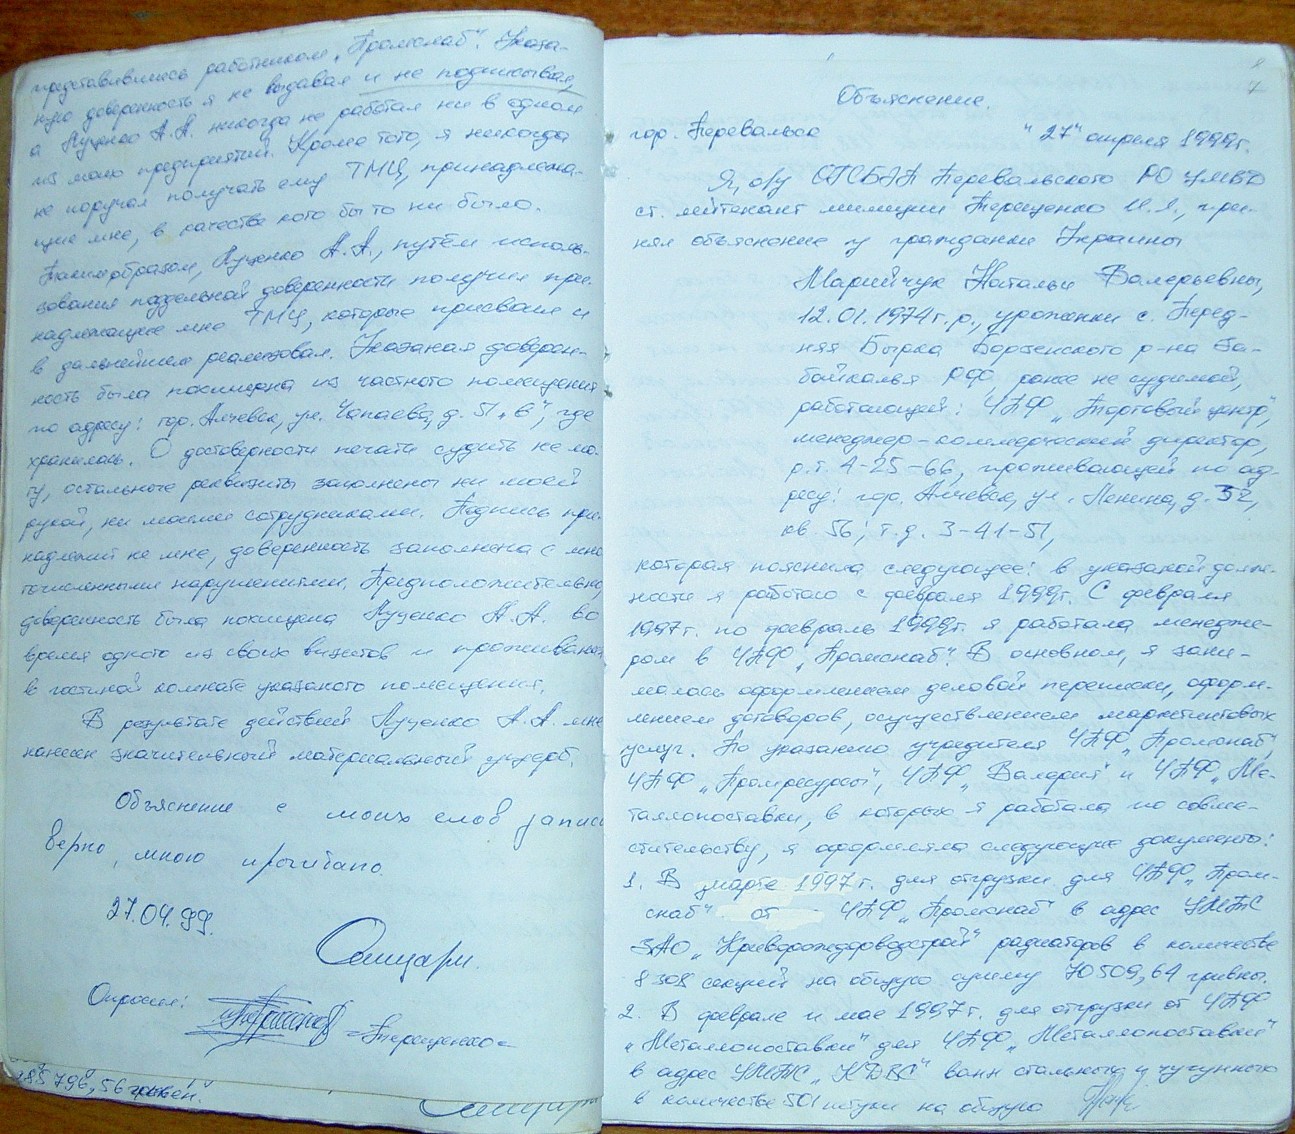 представившись работником „Промснаб“. Указа-
ную доверенность я не выдавал и не подписывал,
а Луценко А.А. никогда не работал ни в одном
из моих предприятий. Кроме того, я никогда
не поручал получать ему ТМЦ, принадлежа-
щие мне, в качестве кого бы то ни было.
Таким образом, Луценко А.А., путём исполь-
зования поддельной доверенности получил при-
надлежащие мне ТМЦ, которые присвоил и
в дальнейшем реализовал. Указаная доверен-
ность была похищена из частного помещения
по адресу: гор. Алчевск, ул. Чапаева, д. 51 „в“, где
хранилась. О достоверности печати судить не мо-
гу, остальные реквизиты заполнены ни моей
рукой, ни моими сотрудниками. Подпись при-
надлежит не мне, доверенность заполнена с мно
точисленными нарушениями. Предположительно,
доверенность была похищена Луценко А.А. во
время одного из своих визитов и проживания
в гостиной комнате указаного помещения.
В результате действий Луценко А.А. мне
нанесен значительный материальный ущерб.
Объяснение с моих слов записа
верно, мною прочитано.
27.04.99.
Опросил:
=Терещенко=
185 796,56 гривен.
7
Объяснение.
гор. Перевальск "27" апреля 1999г.
Я, о/у ОГСБЭП Перевальского РО УМВД
ст. лейтенант милиции Терещенко И.Я., при-
нял объяснение у гражданки Украины
Марийчук Натальи Валерьевны,
12.01.1974г.р., урожанки с. Перед-
няя Бырка Борзенского р-на За-
байкалья РФ, ранее не судимой,
работающей: ЧПФ „Торговый центр“,
менеджер-коммерческий директор,
р.т. 4-25-66, проживающей по ад-
ресу: гор. Алчевск, ул. Ленина, д. 52,
кв. 56; т.д. 3-41-51,
которая пояснила следующее: в указаной долж-
ности я работаю с февраля 1999г. С февраля
1997г. по февраль 1999г. я работала менедже-
ром в ЧПФ „Промснаб“. В основном, я зани-
малась оформлением деловой переписки, оформ-
лением договоров, осуществлением маркетинговых
услуг. По указанию учредителя ЧПФ „Промснаб“,
ЧПФ „Промресурсы“, ЧПФ „Валерия“ и ЧПФ „Ме-
таллопоставки, в которых я работала по совме-
стительству, я оформляла следующие документы:
1. В марте 1997г. для отгрузки для ЧПФ „Пром-
снаб“ от ЧПФ „Промснаб“ в адрес УМТС
ЗАО „Криворожаэроводстрой“ радиаторов в количестве
8308 секций на общую сумму 70509,64 гривны.
2. В феврале и мае 1997г. для отгрузки от ЧПФ
„Металлопоставки“ для ЧПФ „Металлопоставки“
в адрес УМТС „КДВС“ ванн стальных и чугунного
в количестве 501 штуки на общую